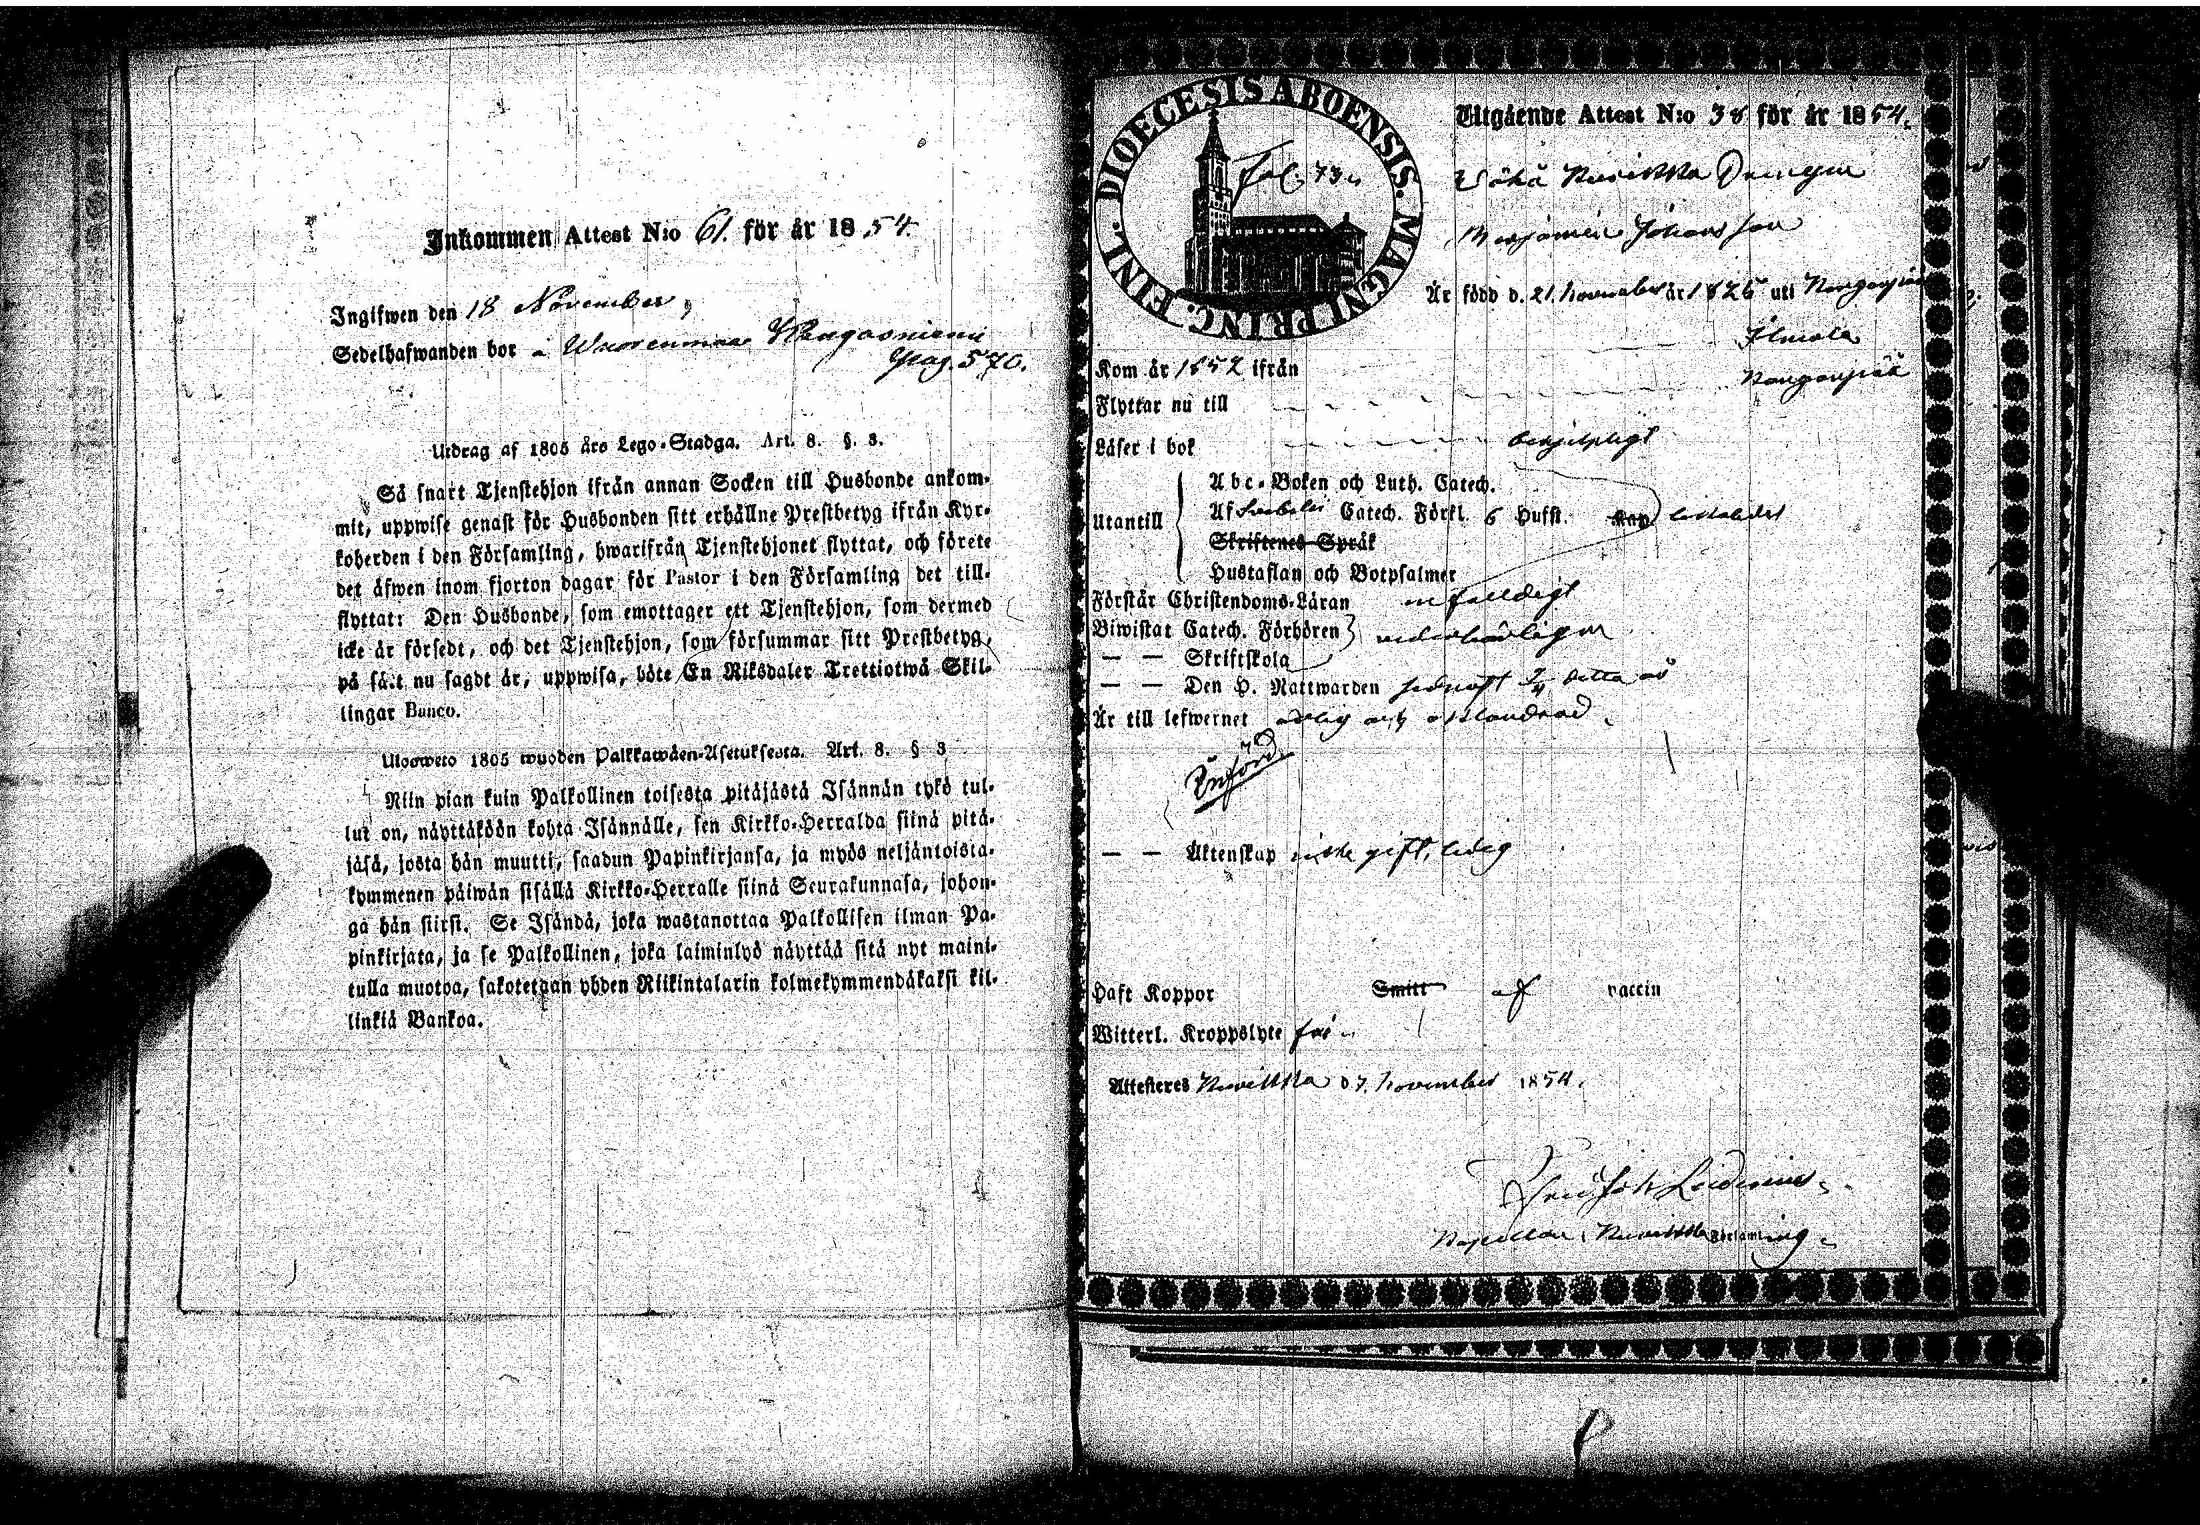 Inkommen Attest N:o 61. för år 1854
Ingifwen den 18 November
Sedelhafwanden bor å Wuorenmaa Kangasniemi
pag. 570.
Utdrag af 1805 års Lego-Stadga. Art. 8. §. 3.
Så snart Tjenstehjon ifrån annan Socken till Husbonde ankom-
mit, uppwise genast för Husbonden sitt erhållne Prestbetyg ifrån Kyr-
koherden i den Församling, hwarifrån Tjenstehjonet flyttat, och förete
det äfwen inom fjorton dagar för Pastor i den Församling det till-
flyttat: Den Husbonde, som emottager ett Tjenstehjon, som dermed
icke är försedt, och det Tjenstehjon, som försummar sitt Prestbetyg,
på sätt nu sagdt är, uppwisa, böte En Riksdaler Trettiotwå Skil-
lingar Banco.
Ulosweto 1805 wuoden Palkkawäen-Asetuksesta. Art. 8. § 3
Niin pian kuin Palkollinen toisesta pitäjästä Isännän tykö tul-
lut on, näyttäköön kohta Isännälle, sen Kirkko-Herralda siinä pitä-
jäsä, josta hän muutti, saadun Papinkirjansa, ja myös neljäntoista-
kymmenen päiwän sisällä Kirkko-Herralle siinä Seurakunnasa, johon-
ga hän siirsi. Se Isändä, joka wastanottaa Palkollisen ilman Pa-
pinkirjata, ja se Palkollinen, joka laiminlyö näyttää sitä nyt maini-
tulla muotoa, sakotetaan yhden Riikintalarin kolmekymmendäkaksi kil-
linkiä Bankoa.
DIOECESIS ABOENSIS. MAGNI PRINC. FINL.
Fol. 73
Utgående Attest N:o 38 för år 1854.
Drängen
Johansson
Är född d. 21. november år 1826 uti
Ilmola
Kom år 1852 ifrån
Flyttar nu till
Läser i bok
Utantill
Abc-Boken och Luth. Catech.
Af Catech. Förkl. 6 Hufst. Kap
Skriftenes Språk
Hustaflan och Botpsalmer
Förstår Christendoms-Läran enfaldigt
Biwistat Catech. Förhören
— — Skriftskola
— — Den H. Nattwarden senast 2/4 detta år
Är till lefwernet ärlig och oklandrad.
Införd
— — Äktenskap icke gift, ledig
Haft Koppor Smitt af vaccin
Witterl. Kroppslyte fri
Attesteras d 7. november 1854.
Församling